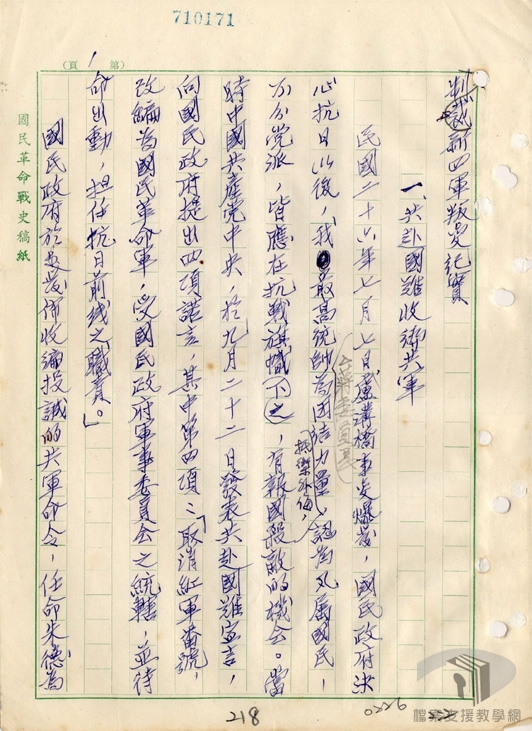 710171
第 頁 1
制裁新四軍叛變紀實
一、共赴國難收編共軍
民國二十六年七月七日盧溝橋事變爆發，國民政府決
心抗日以後，我最高統帥蔣委員長為團結力量，抵禦外侮，認為凡屬國民，
不分党派，皆應在抗戰旗幟下之，有報國殺敵的機會。當
時中國共產党中央，於九月二十二日發表共赴國難宣言，
向國民政府提出四項諾言，其中第四項：「取消紅軍番號，
改編為國民革命軍，受國民政府軍事委員會之統轄，並待
命出動，担任抗日前线之職責。」
國民政府於是發佈收編投誠的共軍命令，任命朱德為
國民革命戰史稿紙
218
0226
222
檔案支援教學網